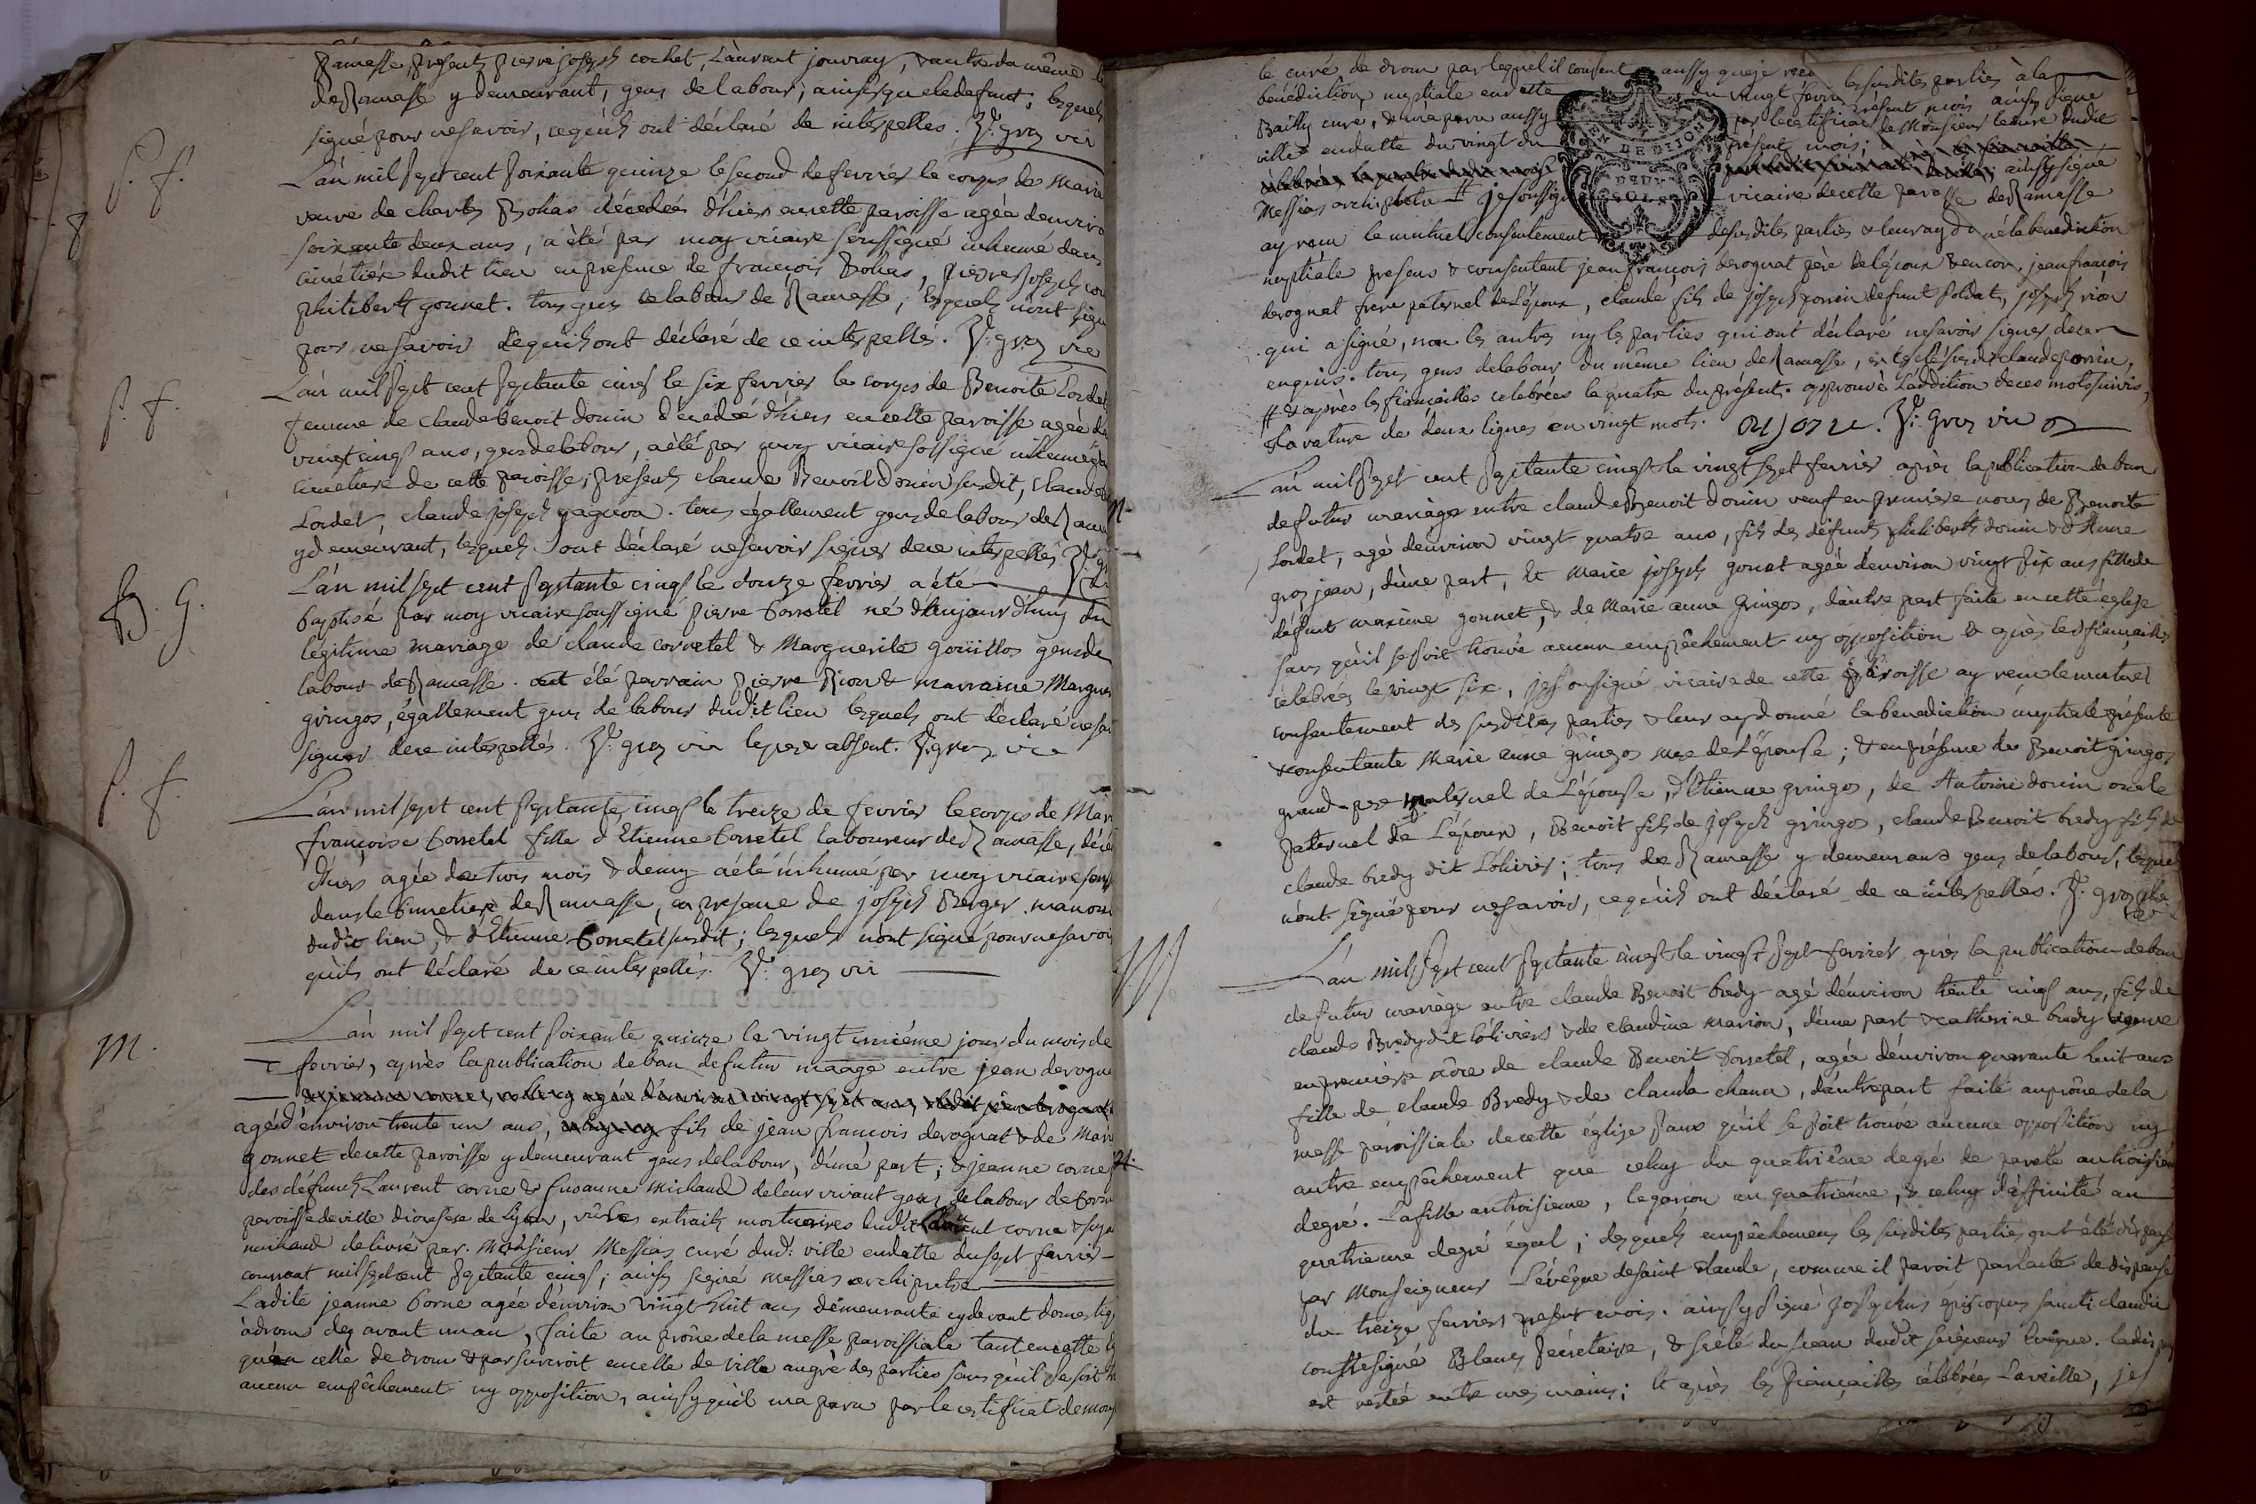 Ramasse, presents pierre joseph cochet, Laurent jouvray, & autre du même
de Ramasse y demeurant, gens de labour, ainsy que le defunt, lesquels
signé pour ne savoir, ce qu'ils ont déclaré de interpellés. J: gros vic
S. f.
L'an mil sept cent soixante quinze le second de fevrier le corps de Marie
veuve de charles Bohas décédée d'hier en cette paroisse agée denviro
soixante deux ans, a été par moy vicaire soussigné inhumé dans
cimetiére dudit lieu en presence de francois Bohas, pierre joseph co
philibert gonnet. tous gens de labour de Ramasse, lesquels n'ont signé
pour ne savoir ce qu'ils ont déclaré de ce interpellés. J: gros vic
S. f.
L'an mil sept cent septante cinq le six fevrier le corps de Benoite Lordet
femme de claude benoit donin décédée d'hier en cette paroisse agée de
vingt cinq ans, gens de labour, a été par moy vicaire sossigné inhumé
cimetiere de cette paroisse, presents claude Benoit donin susdit, claude
Lordet, claude joseph gagneon. tous égallement gens de labour de Ramas
y demeurant, lesquels ont déclaré ne savoir signer de ce interpellés J: g
B. G.
L'an mil sept cent septante cinq le douze fevrier a été
baptisé par moy vicaire soussigné pierre Corretel né d'aujourd'huy du
légitime mariage de claude corretel & Marguerite goüillos gens de
labour de Ramasse. ont été parrain pierre Rion & marraine Margue
gringos, égallement gens de labour dudit lieu lesquels ont déclaré ne sa
signer de ce interpellés. J: gros vic le pere absent. J: gros vic
S. f.
L'an mil sept cent septante cinq le treize de fevrier le corps de Mari
françoise Corretel fille d'Etienne Corretel laboureur de Ramasse, décé
d'hier agée de trois mois & demy a été inhumé par moy vicaire sous
dans le Cimetiere de Ramasse, en presence de joseph Berger manou
dudit lieu, & d'Etienne Corretel susdit; lesquels n'ont signé pour ne savoi
qu'ils ont déclaré de ce interpellés. J: gros vic
M.
L'an mil sept cent soixante quinze le vingt uniéme jour du mois de
fevrier, après la publication de ban de futur maage entre jean derogna
agé d'environ trente un ans, fils de jean francois derognat & de Mari
gonnet de cette paroisse y demeurant gens de labour, d'une part; & jeanne corne
des défunts Laurent corne & Susanne Michaud de leur vivant gens de labour de
paroisse de ville diocesse de Lyon, vû les extraits mortuaires dudit Laurent corne & susa
michaud delivré par Monsieur Messias curé dud: ville en datte du sept fevrier
courrant mil sept cent septante cinq; ainsy signé Messias archipretre
Ladite jeanne Corne agée d'environ vingt huit ans demeurante cy devant domestiq
à drom dez avant un an, faite au prône de la messe paroissiale tant en cette
qu'en celle de drom & par surcroit en celle de ville au gré des parties sans qu'il se soit
aucun empêchement ny opposition, ainsy qu'il m'a paru par le certificat de mons
le curé de drom par lequel il consent aussy que je les susdites parties à la
benediction nuptiale en datte du vingt fevrier présent mois ainsy signé
Bailly curé, & m'a paru aussy par le certificat de Monsieur le curé dudit
ville en datte du vingt du présent mois;
ainsy signé
Messias archipretre # je soussigné vicaire de cette paroisse de Ramasse
ay reçu le mutuel consentement desusdites parties & leur ay donné la benediction
nuptiale present & consentant jean françois derognat père de l'époux & encor. jean françois
derognat frere paternel de L'époux, claude fils de joseph donin defunt soldat, joseph rion
qui a signé, non les autres ny les parties qui ont déclaré ne savoir signer de ce
enquis. tous gens de labour du même lieu de Ramasse,
# & après les fiançailles celebrées le quatre du présent. approuvé L'addition de ces mots suivis,
& la rature de deux lignes en vingt mots. J: gros vic
M.
L'an mil sept cent septante cinq le vingt sept fevrier après la publication de ban
de futur mariage entre claude Benoit donin veuf en première noces de Benoite
Lordet, agé denviron vingt quatre ans, fils des défunts philibert donin & d'Anne
gros jean, d'une part, Et Marie joseph gonnet agée denviron vingt six ans fille de
défunt maxime gonnet, & de Marie anne Gringos, d'autre part faite en cette église
sans qu'il se soit trouvé aucun empêchement ny opposition & après les fiançailles
célebrées le vingt six, je soussigné vicaire de cette paroisse ay reçu le mutuel
consentement des susdites parties & leur ay donné la benediction nuptiale présente
& consentante Marie anne gringos mere de L'épouse; & en présence de Benoit gringos
grand-pere maternel de L'épouse, d'Etienne gringos, de Antoine donin oncle
paternel de L'époux, Benoit fils de joseph gringos, claude Benoit bredy fils de
claude bredy dit L'olivier; tous de Ramasse y demeurans gens de labour, lesquels
n'ont signé pour ne savoir, ce qu'ils ont déclaré de ce interpellés. J: gros vic
M
L'an mil sept cent septante cinq le vingt sept fevrier après la publication de ban
de futur mariage entre claude Benoit bredy agé d'environ trente cinq ans, fils de
claude Bredy dit L'oliviers & de claudine marion, d'une part & catherine bredy veuve
en première nôce de claude Benoit Corretel, agée d'environ quarante huit ans
fille de claude Bredy & de clauda chanu, d'autre part faite au prône de la
messe paroissiale de cette église sans qu'il se soit trouvé aucune opposition ny
autre empêchement que celuy du quatriême degré de parenté au troisiém
degré. La fille au troisieme, le garçon au quatriéme, & celuy d'affinité au
quatrieme degré égal; desquels empêchemens les susdites parties ont été dispensé
par Monseigneur L'évêque de saint Claude, comme il paroit par lacte de dispense
du treize fevriers present mois. ainsy signé Josephus episcopus sancti claudii
contresigné Blanc secrétaire, & scélé du sceau dudit seigneur Evêque. ladis
est restée entre mes mains; Et après les fiançailles célébrées La veille, je